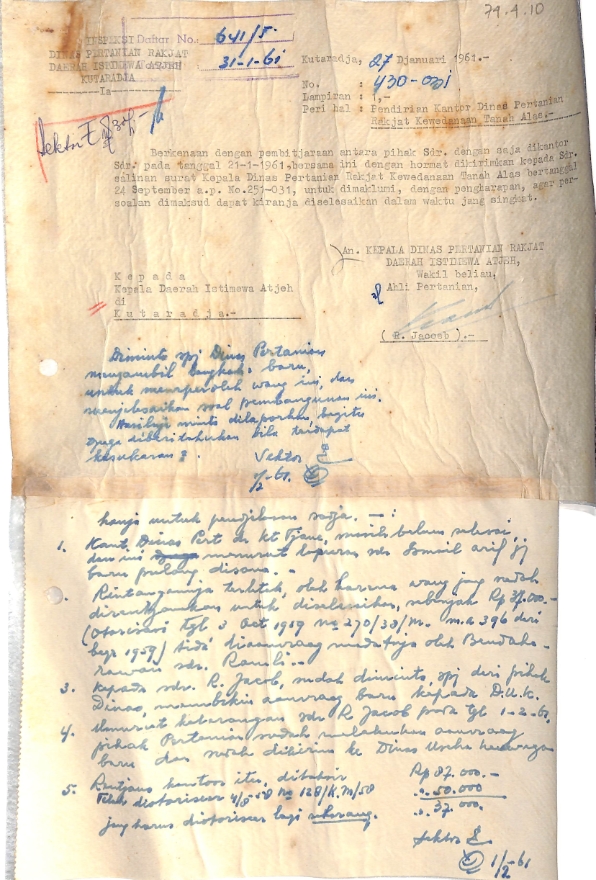 79.4.10
INSPEKSI Daftar No. 641/5.
DINAS PERTANIAN RAKJAT
DAERAH ISTIMEWA ATJEH : 31-1-61
KUTARADJA
Kutaradja, 27 Djanuari 1961.-
No. : 430-031
Lampiran : 1,-
Perihal : Pendirian Kantor Dinas Pertanian
Rakjat Kewedanaan Tanah Alas.-
Sektor E
Berkenaan dengan pembitjaraan antara pihak Sdr. dengan saja dikantor
Sdr. pada tanggal 21-1-1961, bersama ini dengan hormat dikirimkan kepada Sdr.
salinan surat Kepala Dinas Pertanian Rakjat Kewedanaan Tanah Alas bertanggal
24 September a.p. No.251-031, untuk dimaklumi, dengan pengharapan, agar per-
soalan dimaksud dapat kiranja diselesaikan dalam waktu jang singkat.
An. KEPALA DINAS PERTANIAN RAKJAT
DAERAH ISTIMEWA ATJEH,
Wakil beliau,
Ahli Pertanian,
( R. Jacoeb ).-
Kepada
Kepala Daerah Istimewa Atjeh
di
Kutaradja.-
Diminta spj Dinas Pertanian
mengambil langkah baru,
untuk memperoleh wang ini, dan
menjelesaikan soal pembangunan ini.
Hasilnja minta dilaporkan, begitu
djuga diberitahukan bila terdapat
kesukaran.
Sektor E
1/2-61.
hanja untuk pendjelasan sadja. -:
1. Kant. Dinas Pert. di Kt Tjane, masih belum selesai,
dan ini menurut laporan sdr Ismail Arif jg
baru pulang disana. -
2. Rintangannja terletak, oleh karena wang jang sudah
diuntukkan untuk diselesaikan, sebanjak Rp 37.000.-
(otorisasi tgl 3 Oct 1959 no 270/ m.a 396 dari
1959) tida' diaanvraag mandatnja oleh Bendaha-
rawan sdr. Ramli. -
3. Kepada sdr. R. Jacob, sudah diminta, spj dari pihak
Dinas, membikin aanvraag baru kepada D.U.K.
4. Menurut keterangan sdr R Jacob pada tgl 1-2-61,
pihak Pertanian sudah melakukan aanvraag
baru dan sudah dikirim ke Dinas Urusan Keuangan
5. Rantjangan kantoor itu, ditaksir Rp 87.000.-
Telah diotoriseer 4/8-58 no 128/K.M/58 " 50.000
jang harus diotoriseer lagi sekarang. " 37.000.
Sektor E.
1/2-61